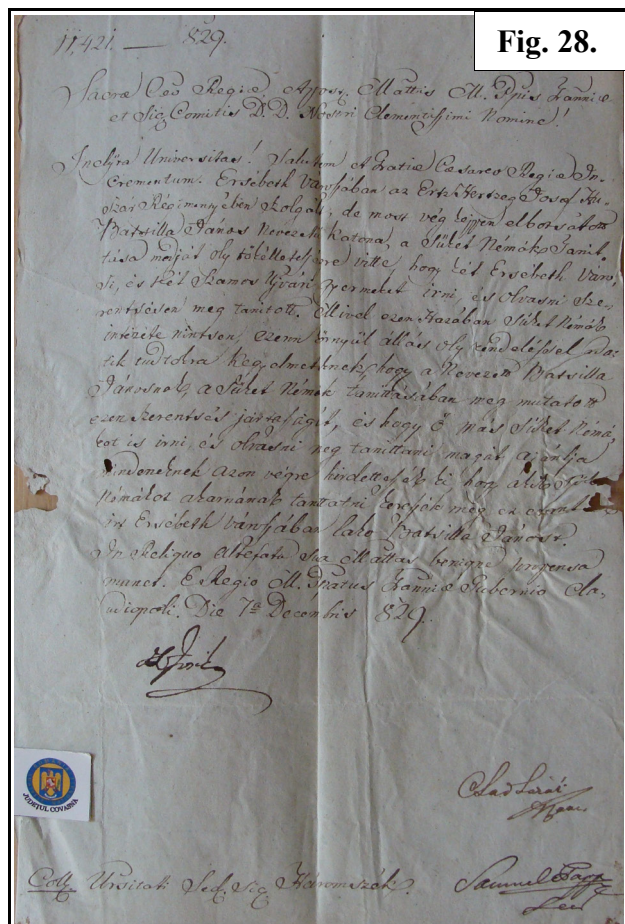 Fig. 28.
11,421. — 829.
Sacræ Cæo Regiæ Appos. Mattis M. Ppis Tranniæ
et Sic. Comitis D. D. Nostri Clementissimi Nomine!
Inclyta Universitas! Salutem et Gratiæ Cæsareo Regiæ In-
crementum. Ersébeth Városában az Ertz Hertzeg Josef Hu-
szár Regimentyében szolgált, de most vég képpen elborsátott
Batsilla János Nevezetű Katona, a Süket Némák Tanit
tása módját oly tökélletességre vitte hogy két Ersébeth Váro-
si, és két Szamos Ujvári gyermeket irni, és olvasni Sze-
rentsésen meg tanitott. Mivel ezen Hazában Süket Némák
intézete nintsen, ezenn környül állás oly rendeléssel
tudtokra Kegyelmeteknek, hogy a Nevezett Batsilla
Jánosnak, a Süket Némák tanításában meg mutatott
ezen szerentsés jártaságát, és hogy Ő más Süket Némá-
kot is irni, és olvasni meg tanittani magát ajánlja
mindeneknek azon végre hirdettessék ki hogy a kik Süket
Némákot akarnának tanittatni
Ersébeth Városában lakó Batsilla Jánost.
In Reliquo Altefata Sua Mattas benigne propensa
manet. E Regio M. Ppatus Tranniæ Gubernio Cla-
udiopoli. Die 7a Decembris 829.
JUDEȚUL COVASNA
Coll. Ursitati Sed. Sic. Háromszék.
Samuel